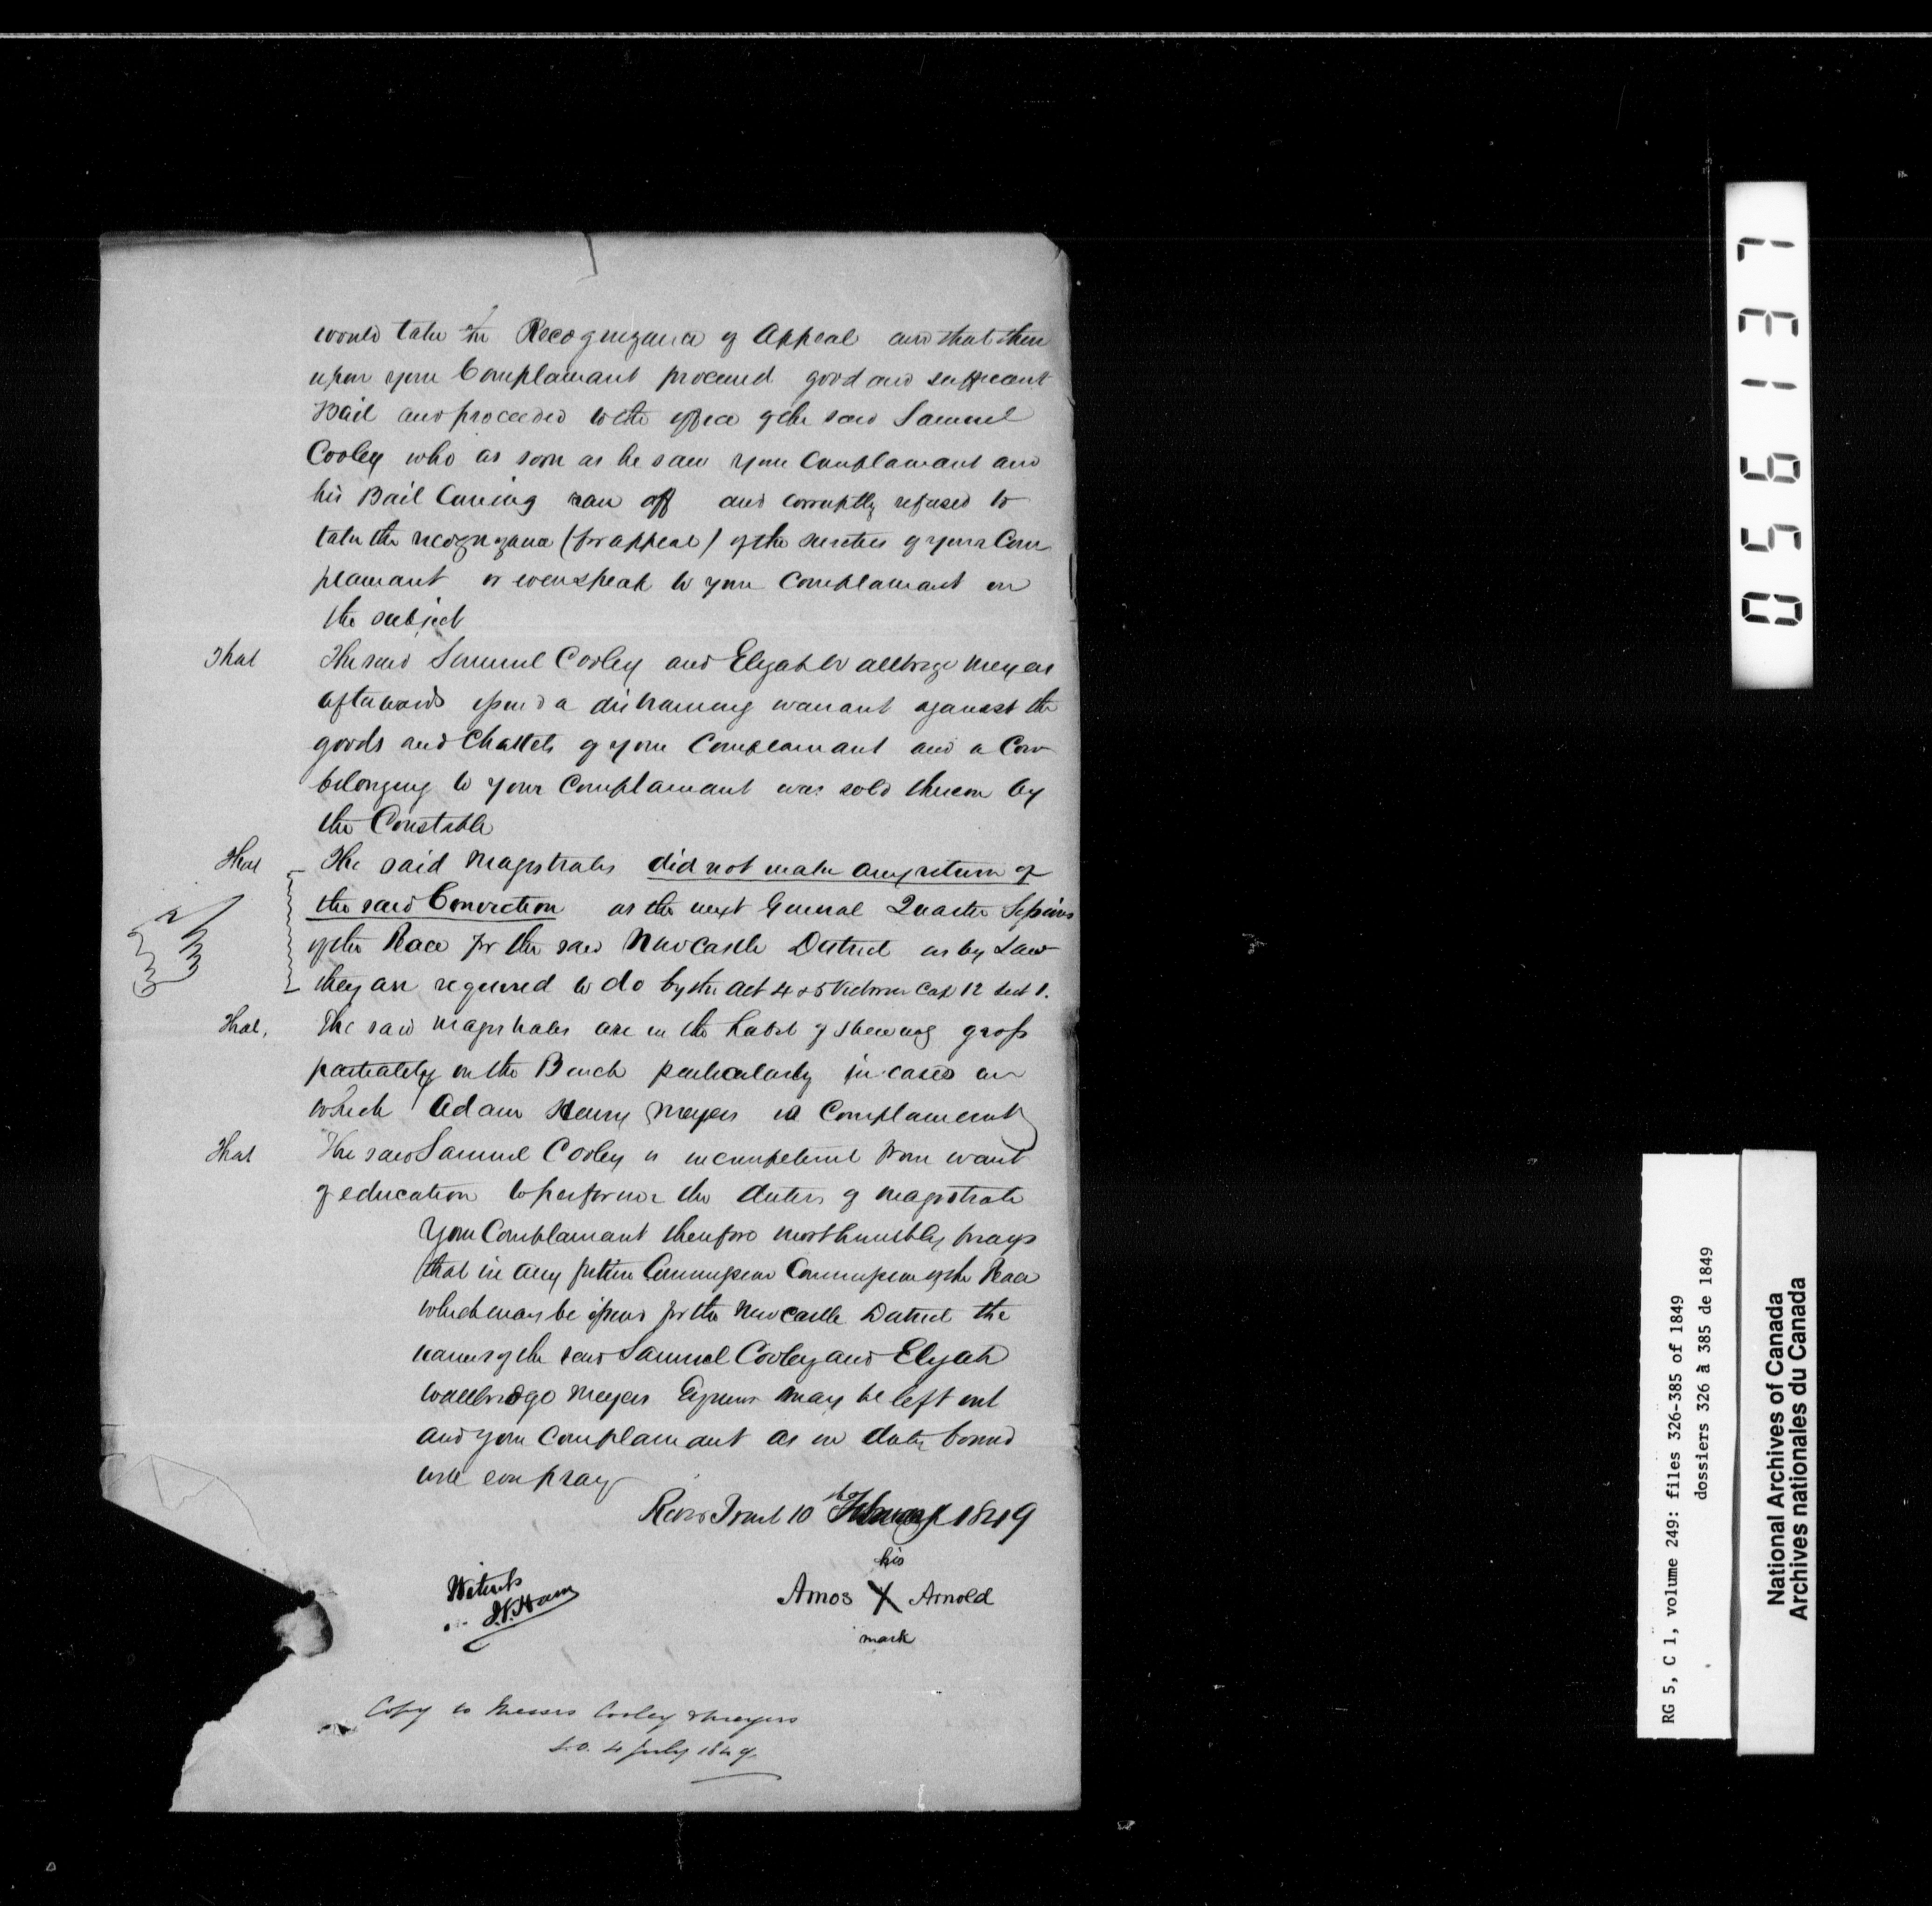 would take the Recognizance of Appeal and that there
upon your Complainant procured good and sufficient
Bail and proceeded to the office of the said Samuel
Cooley who as soon as he saw your Complainant and
his Bail Coming ran off and corruptly refused to
take the recognizance (for appeal) of the sureties of your Com
plainant or even speak to your Complainant on
the subject
That The said Samuel Cooley and Elijah W allbridge Meyers
afterwards issued a distraining warrant against the
goods and Chattels of your Complainant and a Cow
belonging to your Complainant was sold thereon by
the Constable
That The said Magistrates did not make any return of
the said Conviction as the next General Quarter Sessions
of the Peace for the said Newcastle District as by Law
they are required to do by the Act 4 & 5 Victoria Cap 12 Sect 1.
That, The said Magistrates are in the habit of shewing gross
partiality on the Bench particularly in cases in
which Adam Henry Meyers is Complainant
That The said Samuel Cooley is incompetent from want
of education to perform the duties of magistrate
Your Complainant therefore most humbly prays
that in any future Commission Commission of the Peace
which may be issued for the Newcastle District the
names of the said Samuel Cooley and Elijah
Wallbridge Meyers Esquires may be left out
and your Complainant as in duty bound
will ever pray
10th February 1849
his
Witness Amos X Arnold
J.V. Ham
mark
Copy to Messrs Cooley & Meyers
S.O. 4 July 1849
056137
RG 5, C 1, volume 249: files 326-385 of 1849
dossiers 326 à 385 de 1849
National Archives of Canada
Archives nationales du Canada